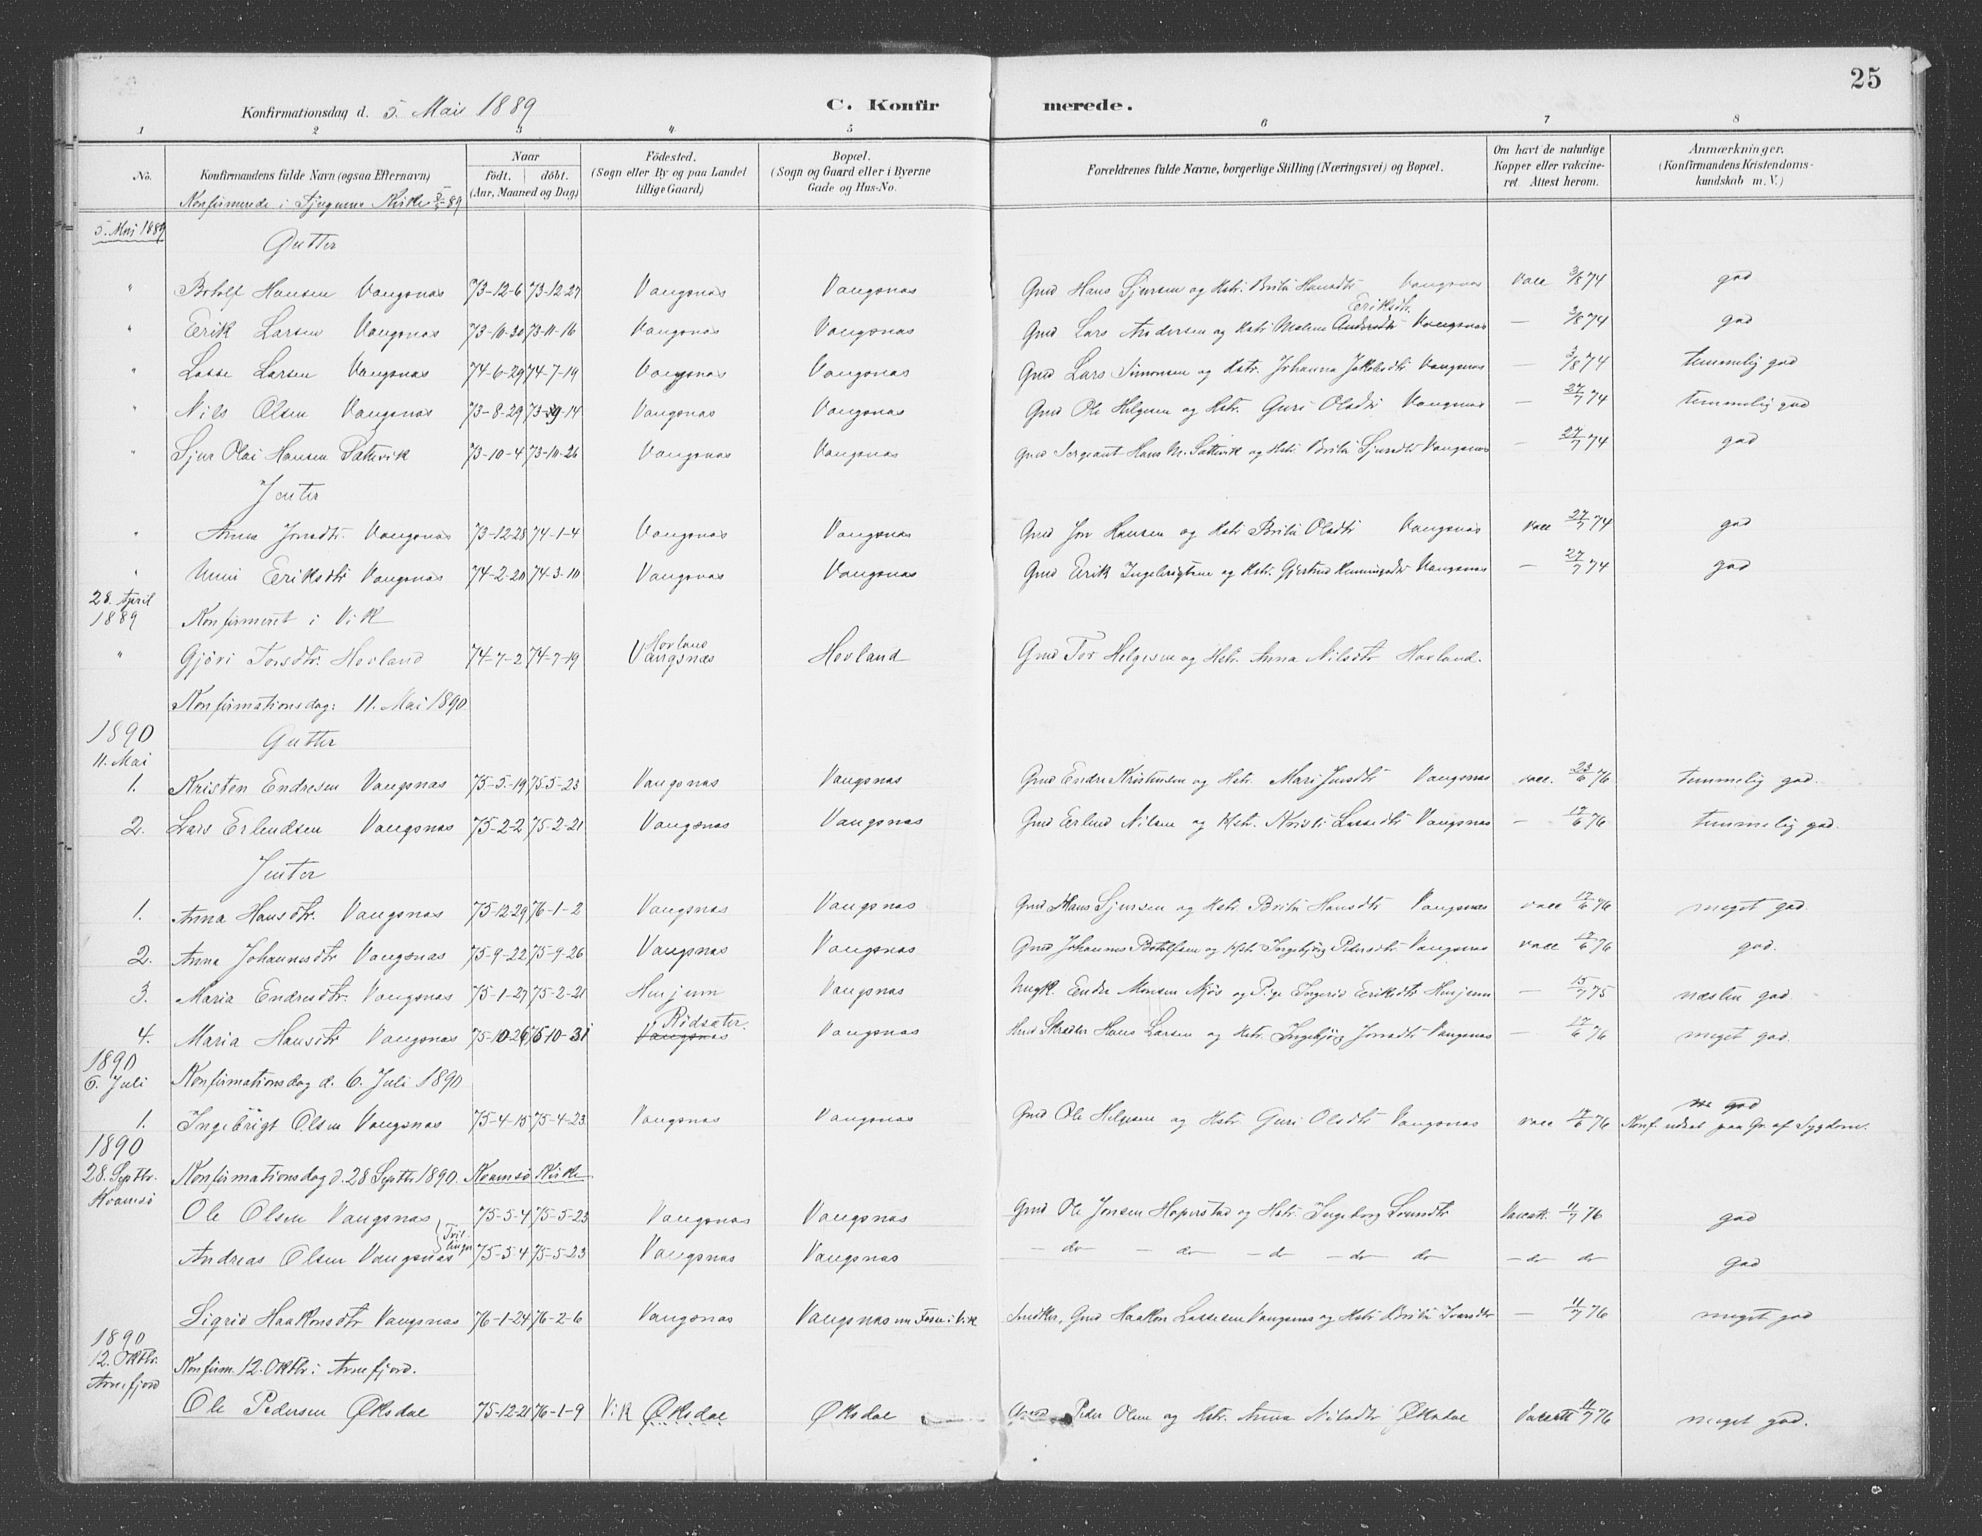 25
Konfirmationsdag d. 5. Mai 1889 C. Konfirmerede.
1 2 3 4 5 6 7 8
No. Konfirmandens fulde Navn (ogsaa Efternavn) Naar født. døbt. (Aar, Maaned og Dag) Födested. (Sogn eller By og paa Landet tillige Gaard) Bopæl. (Sogn og Gaard eller i Byerne Gade og Hus-No. Forældrenes fulde Navne, borgerlige Stilling (Næringsvei) og Bopæl. Om havt de naturlige Kopper eller vakcineret. Attest herom. Anmærkninger. (Konfirmandens Kristendomskundskab m. V.)
Konfirmerede i Kirke 5/5 89
5. Mai 1889
Gutter
" Botolf Hansen Vangsnæs 73-12-6 73-12-27 Vangsnæs Vangsnæs Gmd Hans Sjursen og Hstr. Brita Hansdtr Vangsnæs Vacc 3/8 74 god
" Erik Larsen Vangsnæs 73-10-30 73-11-16 Vangsnæs Vangsnæs Gmd Lars Andersen og Hstr Malene Andersdtr Eriksdtr. Vangsnæs — 3/8 74 god
" Lasse Larsen Vangsnæs 74-6-29 74-7-19 Vangsnæs Vangsnæs Gmd Lars Simonsen og Hstr. Johanna Jakobsdtr Vangsnæs — 3/8 74 temmelig god
" Nils Olsen Vangsnæs 73-8-29 73-9-14 Vangsnæs Vangsnæs Gmd Ole Helgesen og Hstr. Guri Olsdtr Vangsnæs — 27/7 74 temmelig god
" Sjur Olai Hansen Sætevik 73-10-4 73-10-26 Vangsnæs Vangsnæs Gmd Sergeant Hans M. Sætevik og Hstr. Brita Sjursdtr Vangsnæs — 27/7 74 god
Jenter
" Anna Jonsdtr. Vangsnæs 73-12-28 74-1-4 Vangsnæs Vangsnæs Gmd Jon Hansen og Hstr Brita Olsdtr Vangsnæs vacc 27/7 74 god
" Unni Eriksdtr Vangsnæs 74-2-20 74-3-10 Vangsnæs Vangsnæs Gmd Erik Ingebrigtsen og Hstr. Gjertrud Henningsdtr Vangsnæs — 27/7 74 god
28. April 1889 Konfirmeret i Vik
" Gjöri Torsdtr. Hovland 74-7-2 74-7-19 Hovland Vangsnæs Hovland Gmd Tor Helgesen og Hstr. Anna Nilsdtr Hovland.
Konfirmationsdag: 11. Mai 1890
1890 11. Mai Gutter
1. Kristen Endresen Vangsnæs 75-5-19 75-5-23 Vangsnæs Vangsnæs Gmd Endre Kristensen og Hstr. Mari Jensdtr Vangsnæs vacc. 23/6 76 temmelig god.
2. Lars Erlendsen Vangsnæs 75-2-2 75-2-21 Vangsnæs Vangsnæs Gmd Erlend Nilsen og Hstr. Kristi Lassedtr Vangsnæs — 17/6 76 temmelig god.
Jenter
1. Anna Hansdtr. Vangsnæs 75-12-29 76-1-2 Vangsnæs Vangsnæs Gmd Hans Sjursen og Hstr. Brita Hansdtr Vangsnæs vacc 17/6 76 meget god.
2. Anna Johannesdtr Vangsnæs 75-9-22 75-9-26 Vangsnæs Vangsnæs Gmd Johannes Botolfsen og Hstr. Ingebjörg Pedersdtr Vangsnæs vacc 17/6 76 god.
3. Maria Endresdtr. Vangsnæs 75-1-27 75-2-21 Hinjum Vangsnæs Ungk. Endre Monsen Njös og Pige Ingerid Eriksdtr Hinjum — 15/7 75 næsten god
4. Maria Hansdtr Vangsnæs 75-10-26 75-10-31 Rödsæter. Vangsnæs Vangsnæs Skræder Hans Larsen og Hstr. Ingebjörg Jonsdtr Vangsnæs — 17/6 76 meget god.
1890 6. Juli Konfirmationsdag d. 6. Juli 1890
1. Ingebrigt Olsen Vangsnæs 75-4-15 75-4-23 Vangsnæs Vangsnæs Gmd Ole Helgesen og Hstr. Guri Olsdtr Vangsnæs vacc 17/6 76 god Konf. udsat paa Gr. af Sygdom.
1890 28. Septbr. Kvamsö Konfirmationsdag d. 28 Septbr 1890. Kvamsö Kirke
Ole Olsen Vangsnæs 75-5-4 75-5-23 Vangsnæs Vangsnæs Gmd Ole Jonsen Hopperstad og Hstr. Ingeborg 11/7 76 god
Tvillinger
Andreas Olsen Vangsnæs 75-5-4 75-5-23 Vangsnæs Vangsnæs — do — do — do — do do — do do god
Sigrid Haakonsdtr Vangsnæs 76-1-24 76-2-6 Vangsnæs Vangsnæs nu i Vik Snedker, Gmd Haakon Lassesen Vangsnæs og Hstr Brita Ivarsdtr — 11/7 76 meget god
1890 12. Oktbr. Arnefjord Konfirm. 12. Oktbr. i Arnefjord.
Ole Pedersen Øksdal 75-12-21 76-1-9 Vik Øksdal Øksdal Gmd Peder Olsen og Hstr. Anna Nilsdtr Øksdal 11/7 76 meget god.